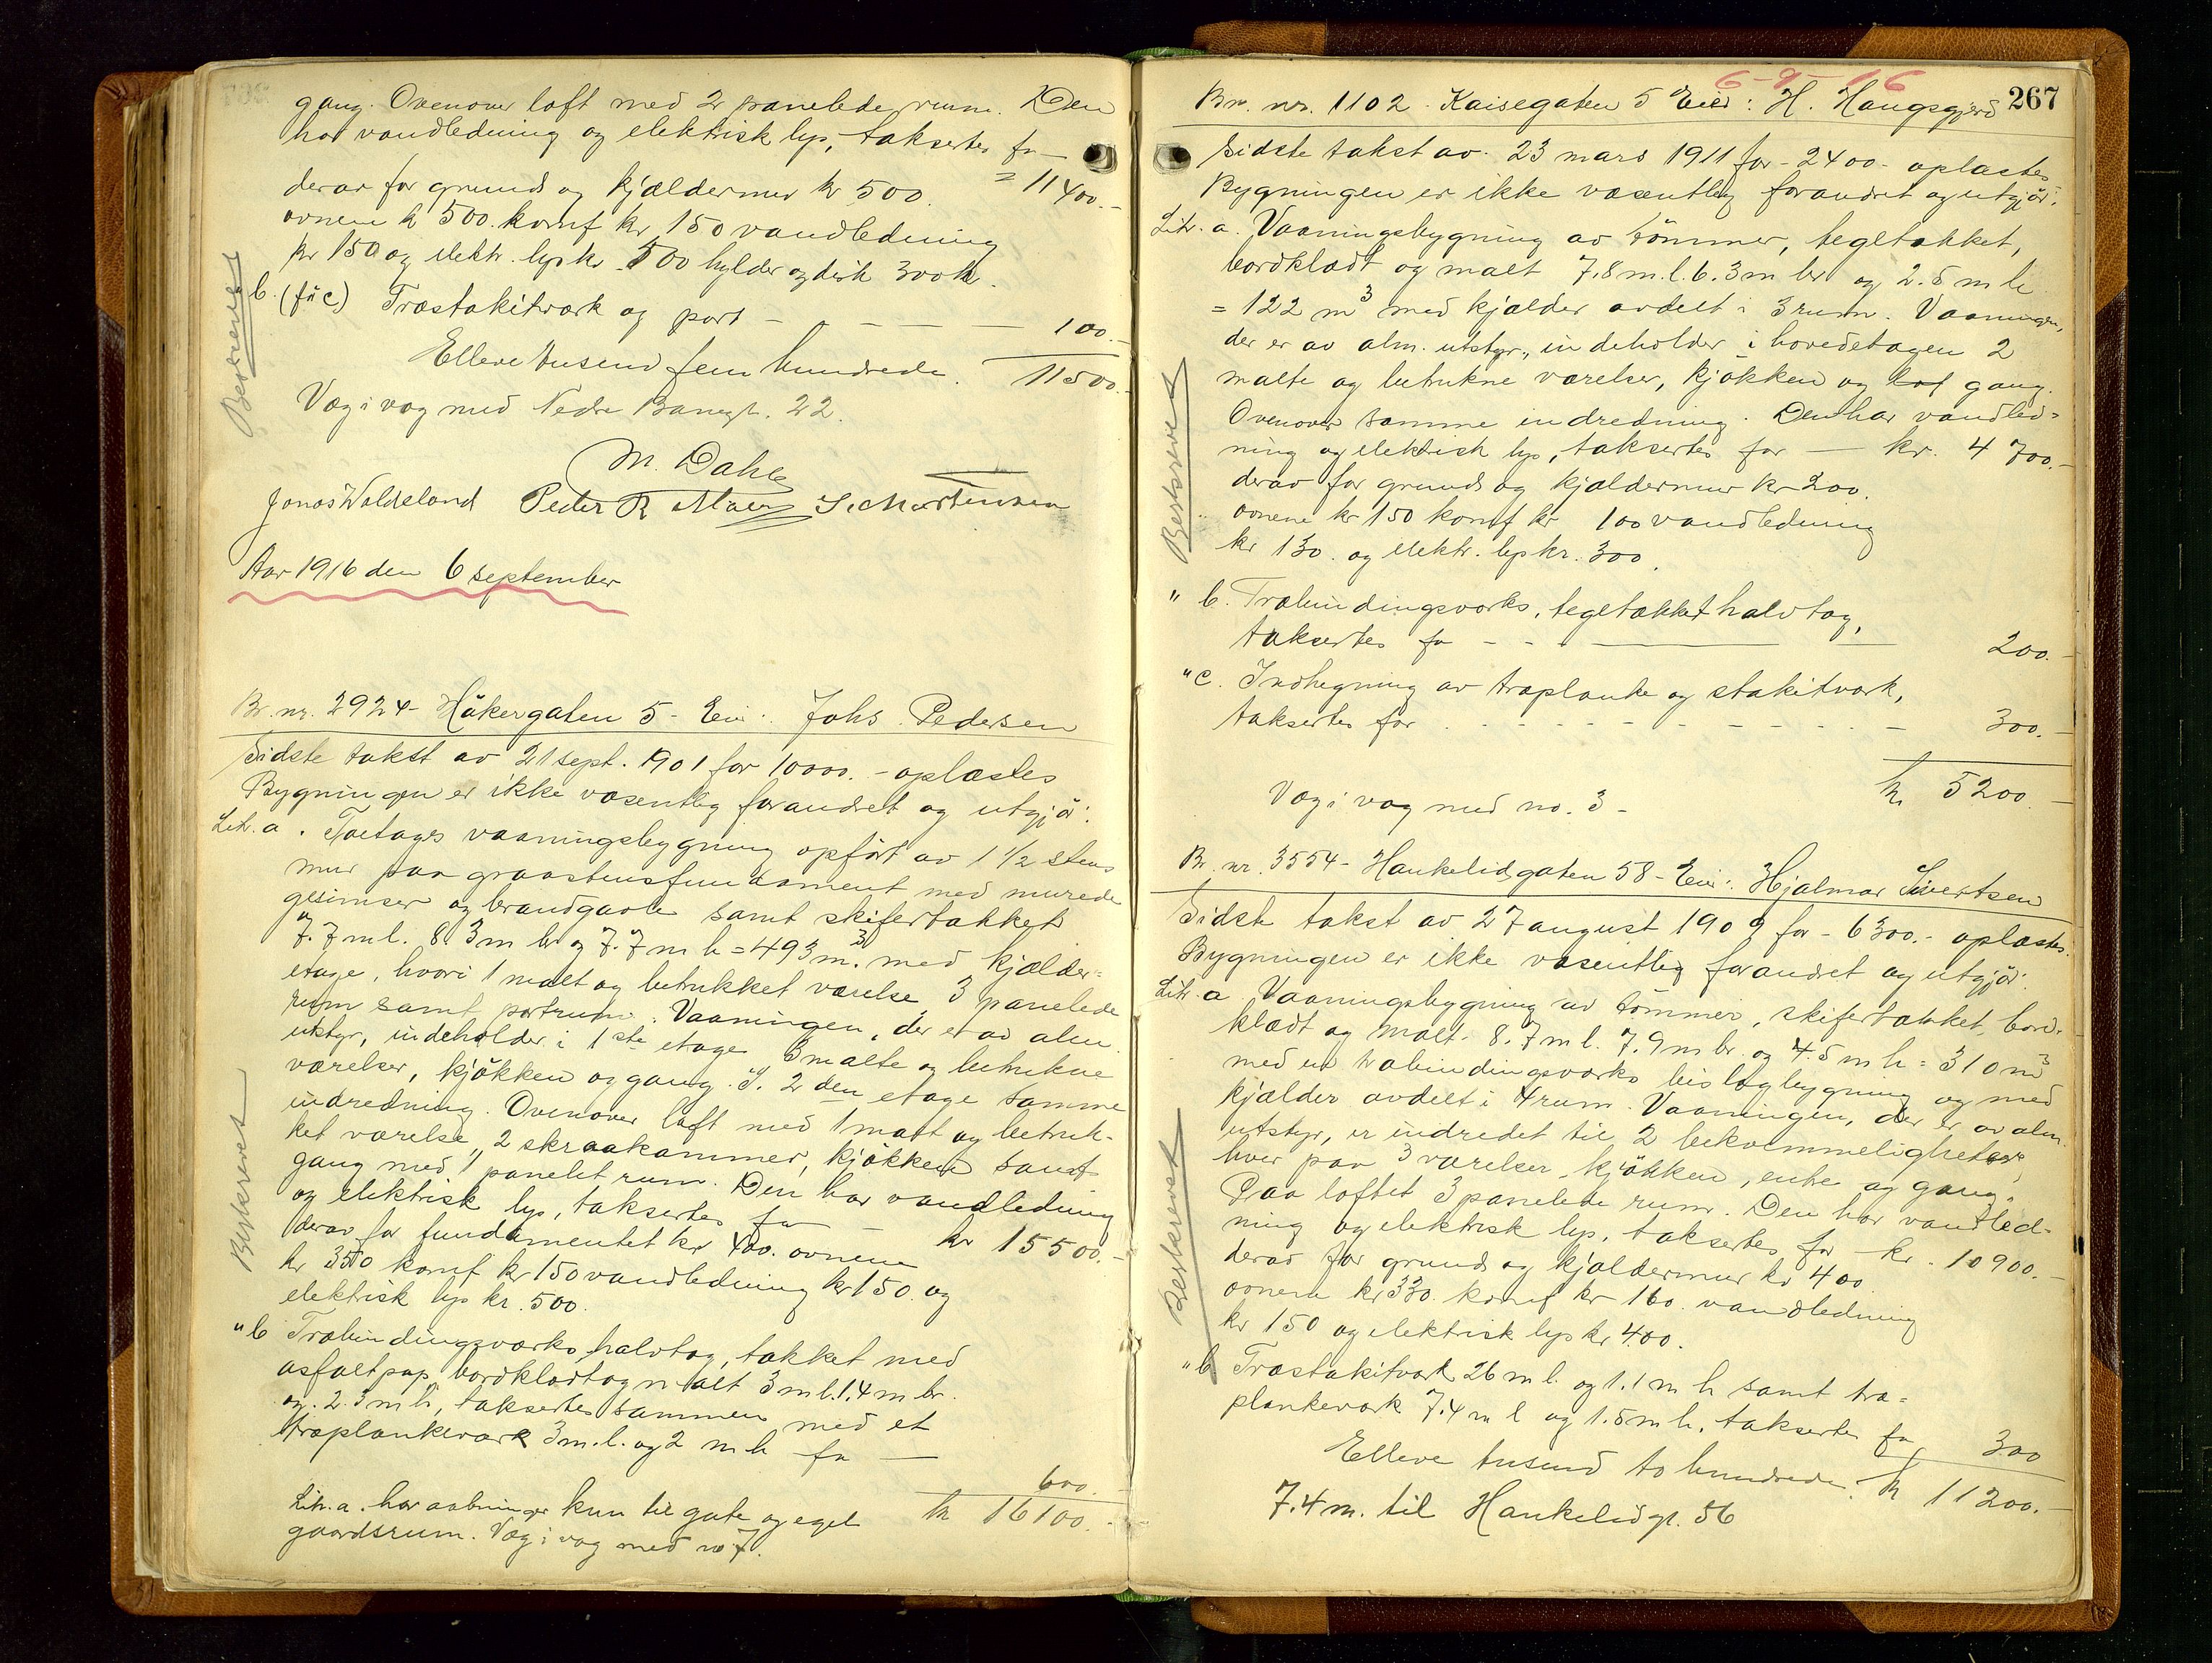 gang. Ovenover loft med 2 panelede rum. Den
har vandledning og elektrisk lys, takseres for —
= 11400.-
derav for grund og kjældermur kr 500.
ovnene kr 500. komf kr 150 vandledning
kr 150 og elektr. lys kr 500 hylder og disk 300 kr.
b. (før c) Træstakitverk og port - - - - — 100.-
Elleve tusend fem hundrede. 11500.-
Væg i væg med Nedre Banegt. 22.
Beskrevet
M. Dahl
Jonas Waldeland Peder R Moen S. Martensen
Aar 1916 den 6 september
Br. nr. 2924 - Håkergaten 5 - Eier: Johs. Pedersen
Sidste takst av 21 sept. 1901 for 10000.- oplæstes
Bygningen er ikke væsentlig forandret og utgjör:
Litr. a. Toetages vaaningsbygning opfört av 1 1/2 stens
mur paa graastensfundament med murede
gesimser og brandgavle samt skifertækket
7.7 m l. 8.3 m br og 7.7 m h = 493 m³. med kjælder-
etage, hvori 1 malt og betrukket værelse, 3 panelede
rum samt portrum. Vaaningen, der er av alm.
utstyr, indeholder i 1ste etage 3 malte og betrukne
værelser, kjökken og gang. I 2den etage samme
indredning. Ovenover loft med 1 malt og betruk-
ket værelse, 2 skraakammer, kjökken samt
gang med 1 panelet rum. Den har vandledning
og elektrisk lys, takseres for — kr 15500.-
derav for fundamentet kr 400. ovnene
kr 350 komf kr 150 vandledning kr 150. og
elektrisk lys kr. 500.
Beskrevet
" b Træbindingsverks halvtag, tækket med
asfaltpap, bordklædt og malt 3 m l. 1.4 m br.
og 2.3 m h, takseres sammen med et
træplankeverk 3 m. l. og 2 m h for —
600.
Litr. a. har aabninger kun til gate og eget kr 16100.-
gaardsrum. Væg i væg med no 7.
6-9-16
267
Br. nr. 1102 - Kaisegaten 5 Eier: H. Haugsgjerd
Sidste takst av 23 mars 1911 for - 2400.- oplæstes
Bygningen er ikke væsentlig forandret og utgjör:
Litr. a. Vaaningsbygning av tömmer, tegltækket,
bordklædt og malt 7.8 m. l. 6.3 m br og 2.5 m h
= 122 m³ med kjælder avdelt i 3 rum. Vaaningen,
der er av alm. utstyr, indeholder i hovedetagen 2
malte og betrukne værelser, kjökken og gang.
Ovenover samme indredning. Den har vandled-
ning og elektrisk lys, takseres for — kr. 4700.-
derav for grund og kjældermur kr 200.
ovnene kr 150 komf kr 100 vandledning
kr 130. og elektr. lys kr. 300.
Beskrevet
" b. Træbindingsverks, tegltækket halvtag,
takseres for - - — — 200.-
" c. Indhegning av træplanke og stakitverk,
takseres for - - - - - - - - - 300.-
kr 5200.-
Væg i væg med no. 3 -
Br. nr. 3554 - Haukelidgaten 58 - Eier: Hjalmar Sivertsen
Sidste takst av 27 august 1909 for - 6300.- oplæstes.
Bygningen er ikke væsentlig forandret og utgjör:
Litr. a. Vaaningsbygning av tömmer, skifertækket, bord-
klædt og malt. 8.7 m l. 7.9 m br. og 4.5 m h = 310 m³
med en træbindingsverks bislagbygning og med
kjælder avdelt i 4 rum. Vaaningen, der er av alm.
utstyr, er indredet til 2 bekvemmeligheter,
hver paa 3 værelser, kjökken, entre og gang.
Paa loftet 3 panelede rum. Den har vandled-
ning og elektrisk lys, takseres for — kr. 10900.-
derav for grund og kjældermur kr 400
ovnene kr 330. komf kr 160. vandledning
kr 150 og elektrisk lys kr 400.
Beskrevet
" b Træstakitverk 26 m l. og 1.1 m h samt træ-
plankeverk 7.4 m l og 1.5 m h, takseres for 300
Elleve tusend to hundrede. kr 11200.-
7.4 m. til Haukelidgt. 56